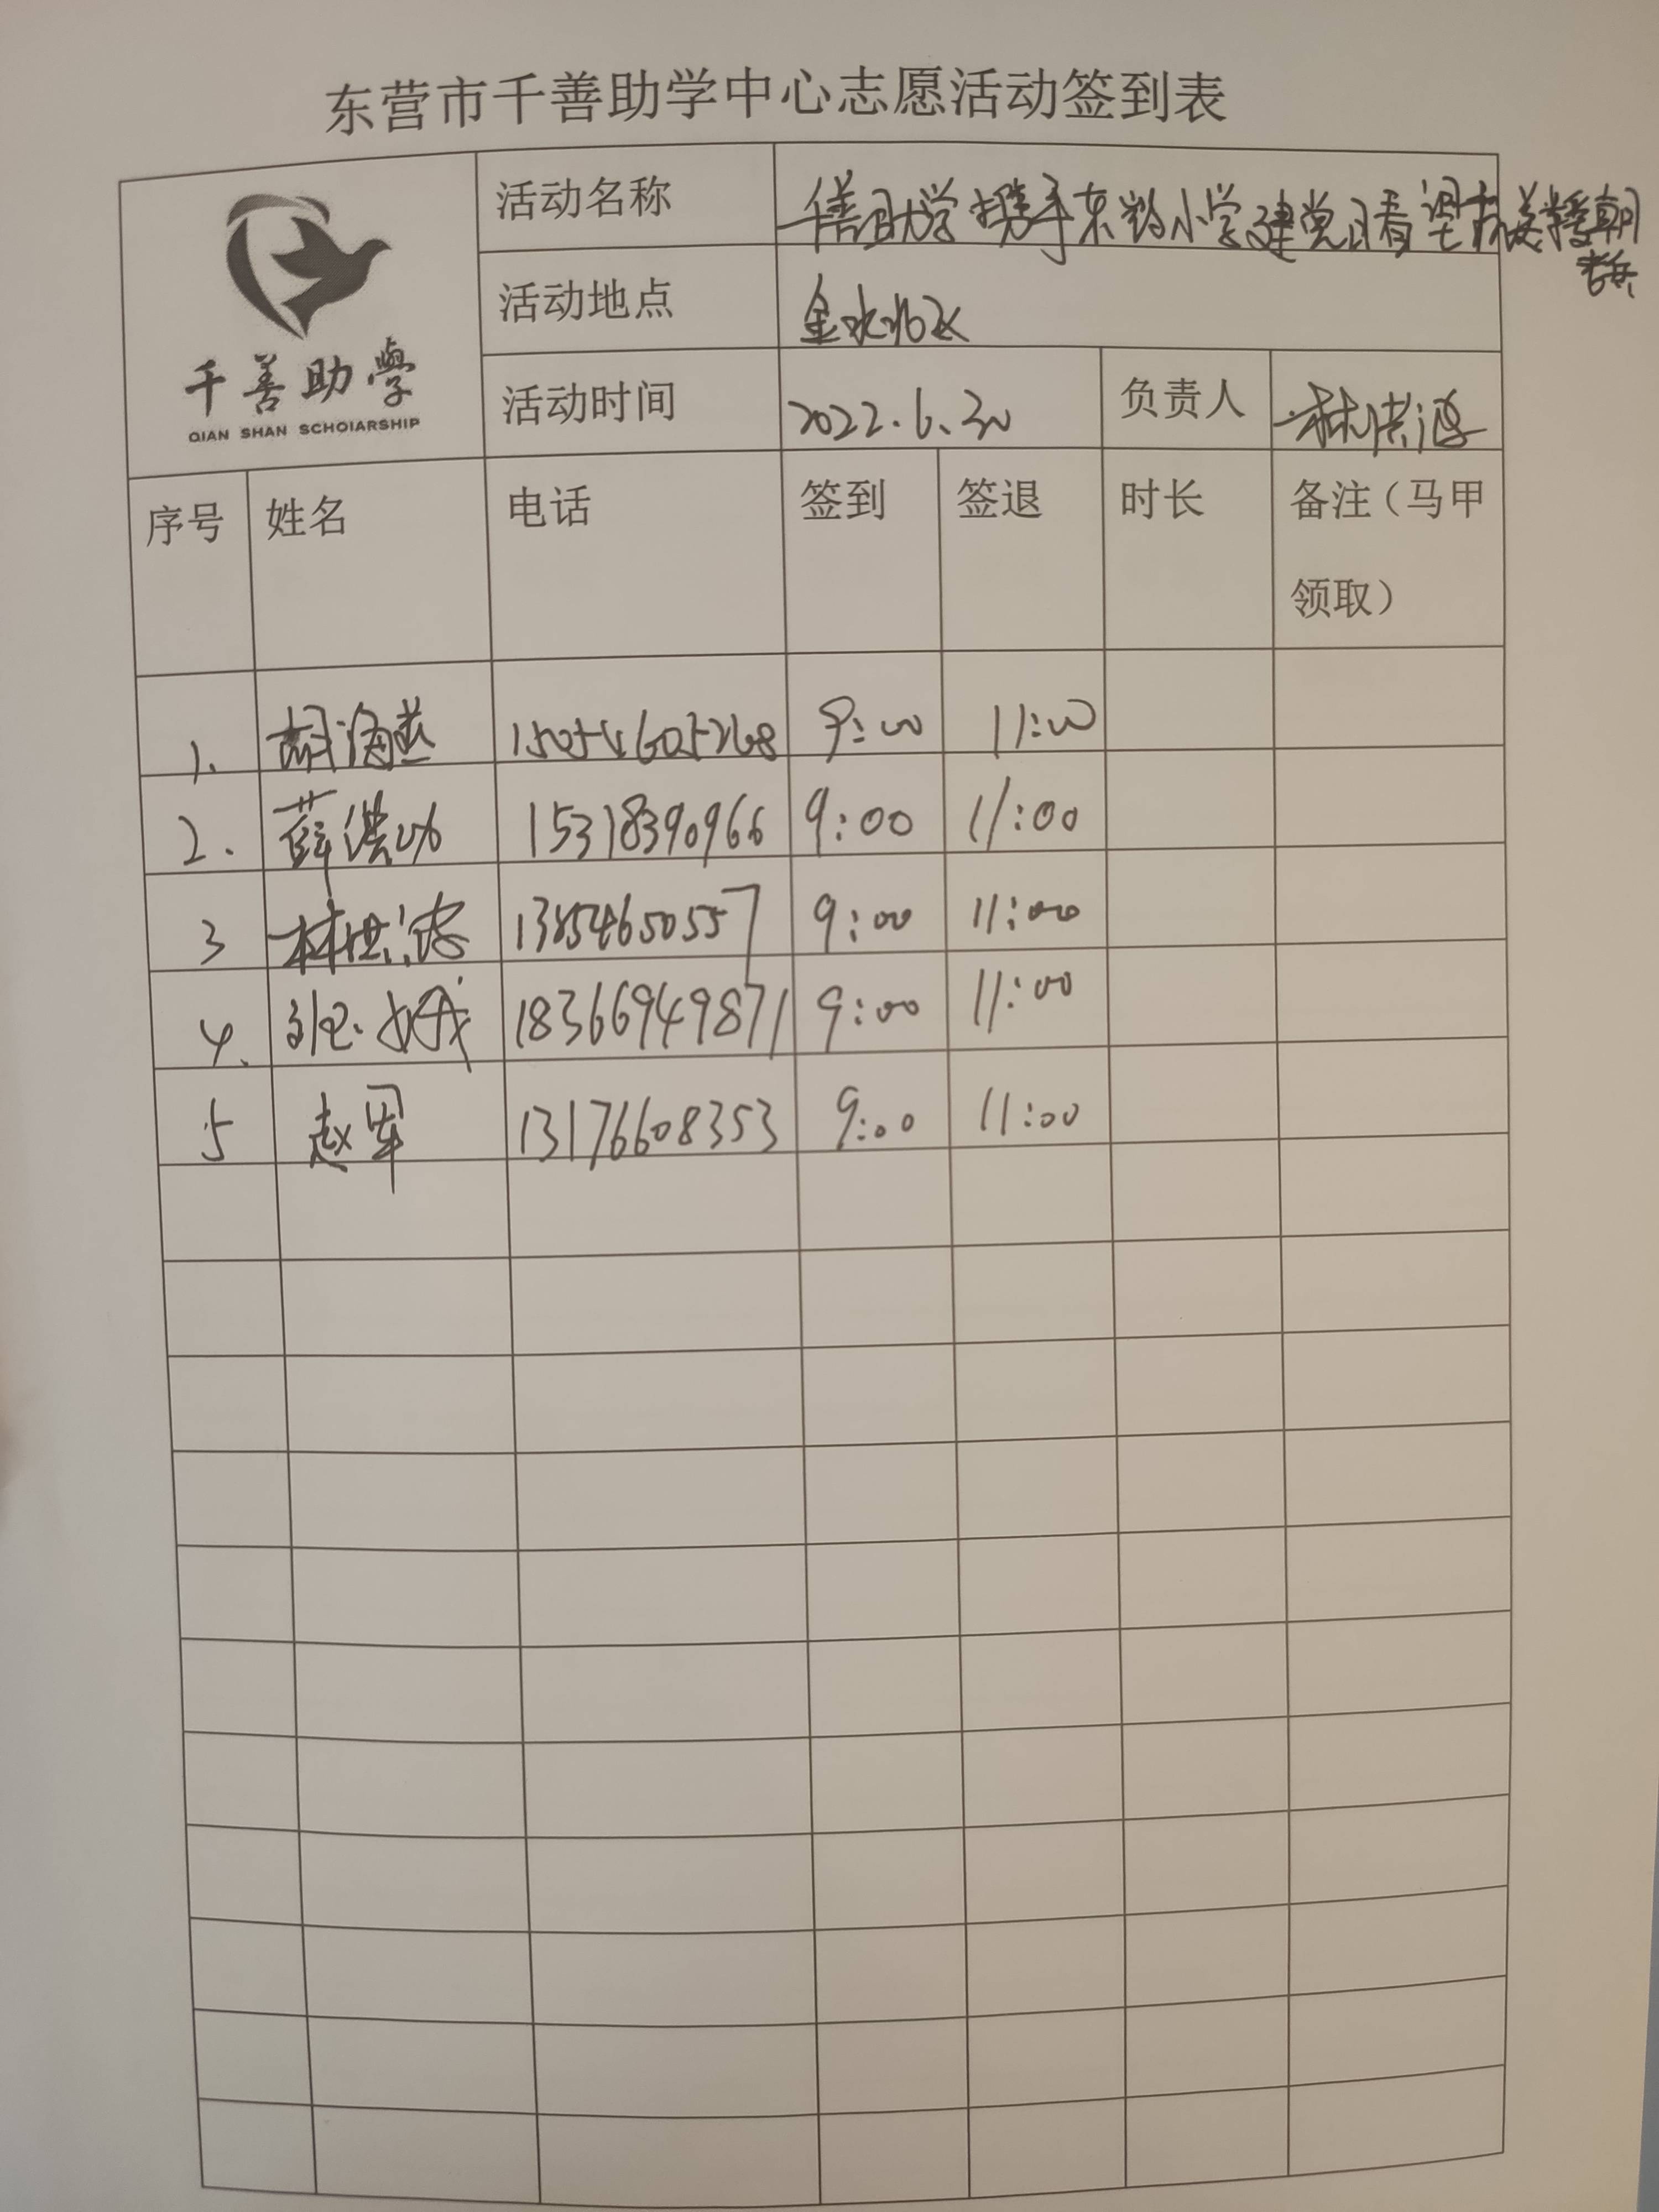 东营市千善助学中心志愿活动签到表
千善助學
QIAN SHAN SCHOIARSHIP
活动名称 千善助学携手东营小学建党日看望抗美援朝
老兵
活动地点 金水
活动时间 2022.6.30 负责人 林洪
序号 姓名 电话 签到 签退 时长 备注（马甲
领取）
1. 胡海燕 15054605268 9:00 11:00
2. 薛洪 15318390966 9:00 11:00
3 林洪 13854650557 9:00 11:00
4. 18366949871 9:00 11:00
5 赵军 13176608353 9:00 11:00